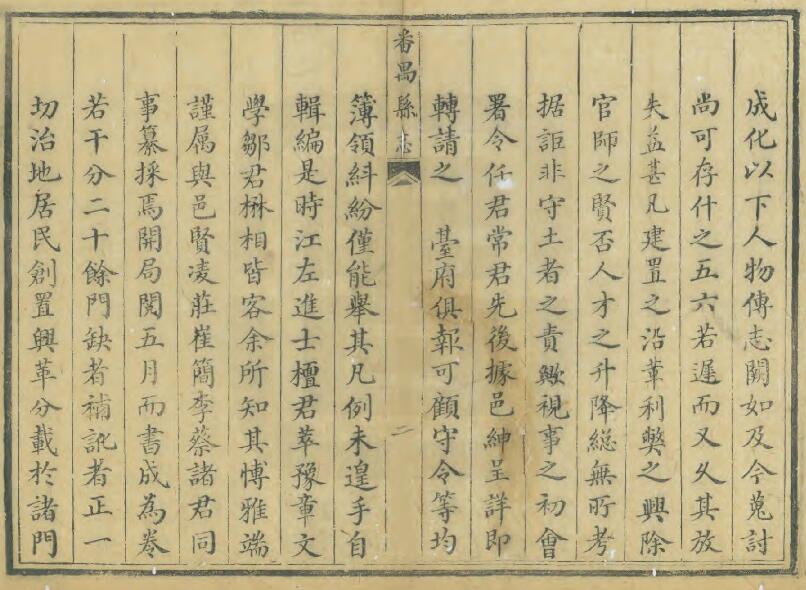 成化以下人物傳志闕如及今蒐討
尚可存什之五六若遲而又久其放
失益甚凡建置之沿革利獘之興除
官師之賢否人才之升降総無所考
据詎非守土者之責歟視事之初會
署令任君常君先後據邑紳呈詳即
轉請之　臺府俱報可顧守令等均
番禺縣志
二
簿領紏紛僅能舉其凡例未遑手自
輯編是時江左進士檀君萃豫章文
學鄒君楙相皆客余所知其博雅端
謹属與邑賢凌莊崔簡李蔡諸君同
事纂採焉開局閱五月而書成為卷
若干分二十餘門缺者補訛者正一
切治地居民創置興革分載於諸門